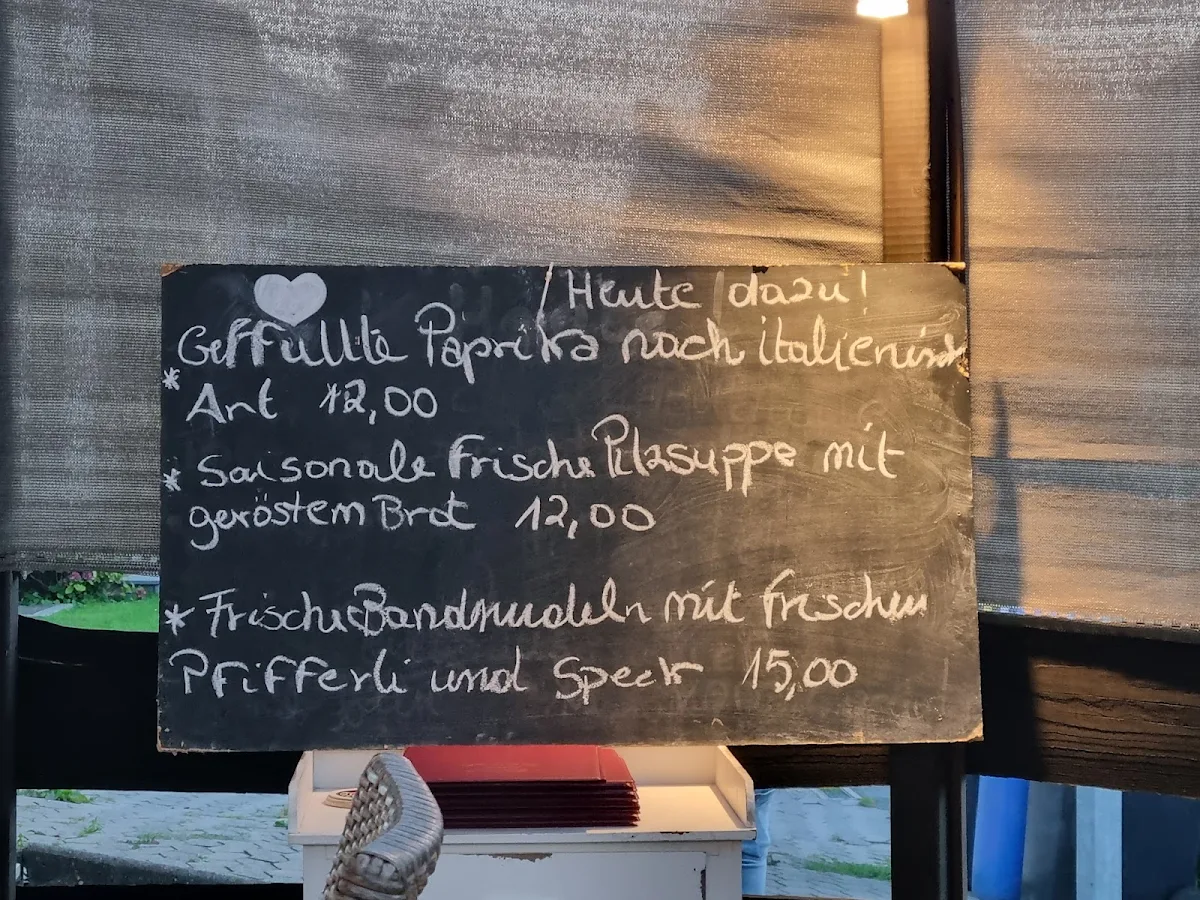 Heute dazu!
Geffüllte Paprika nach italienisch
* Art 12,00
* Saisonale Frische Pilzsuppe mit
geröstem Brot 12,00
* Frische Bandnudeln mit frischen
Pfifferli und Speck 15,00